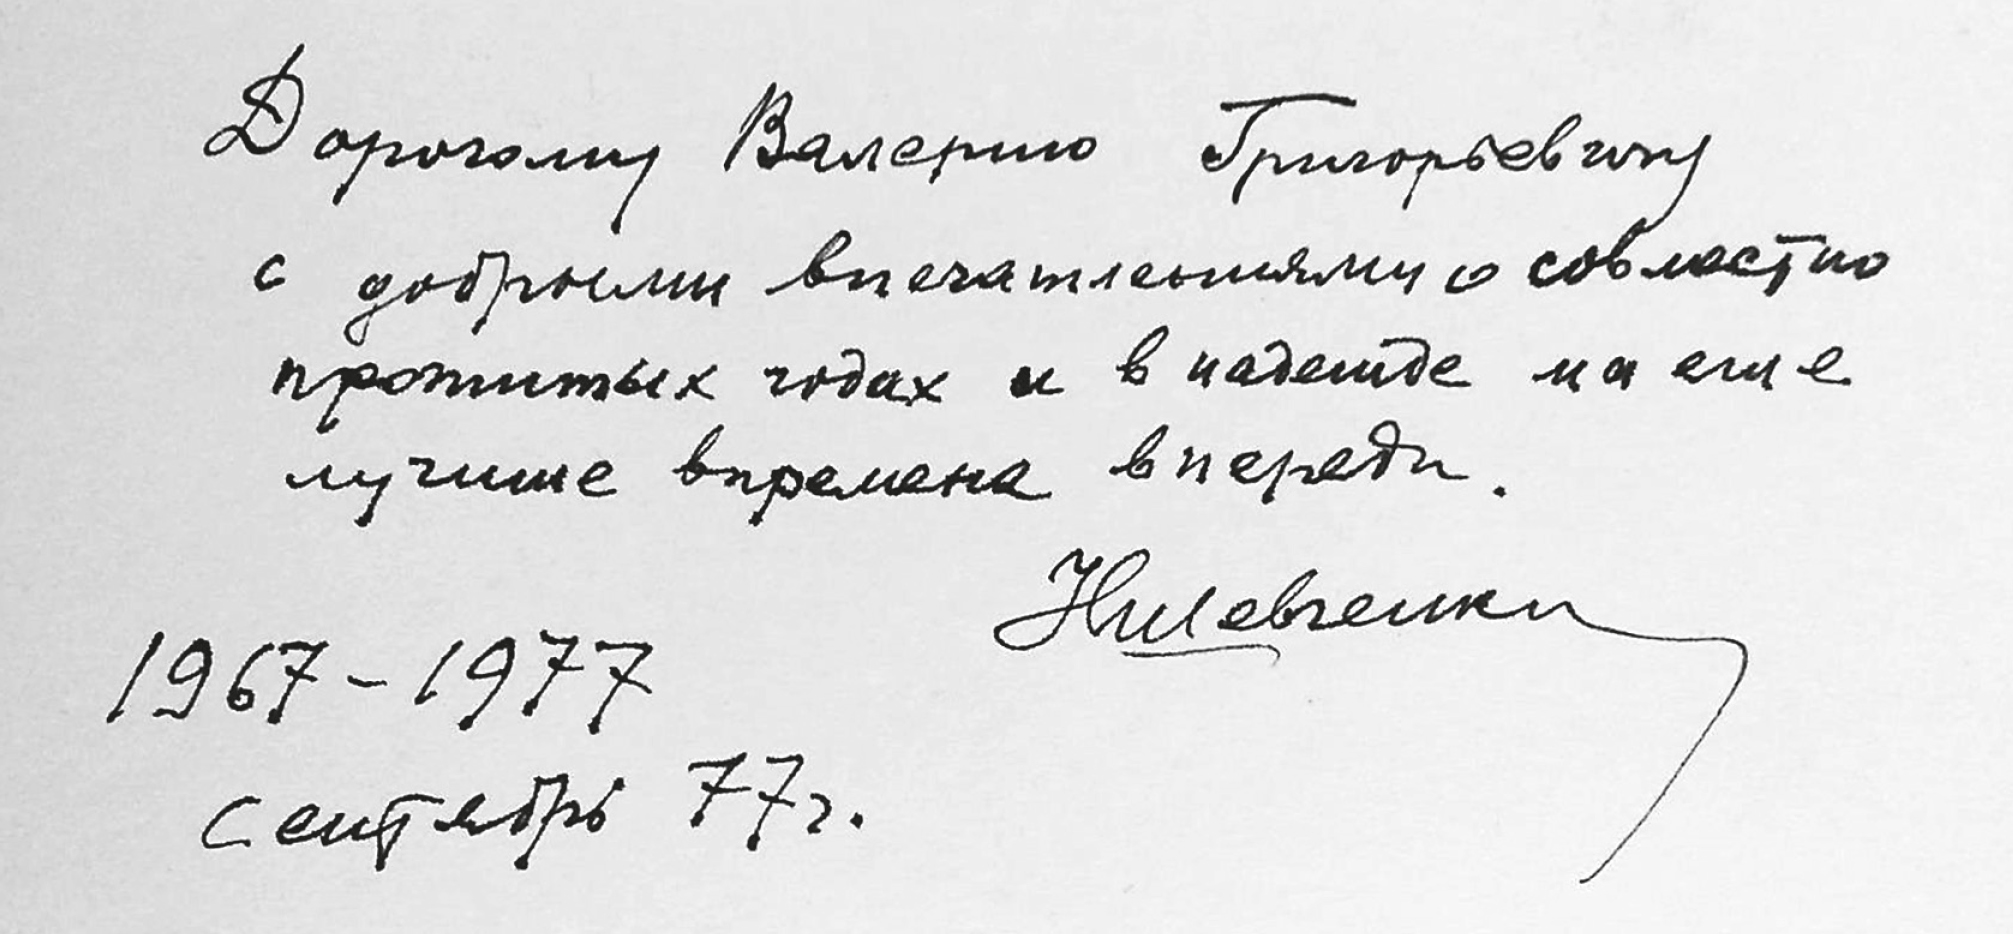 Дорогому Валерию Григорьевичу
с добрыми впечатлениями о совместно
прожитых годах и в надежде на еще
лучшие впремена впереди.
1967-1977
сентябрь 77г.